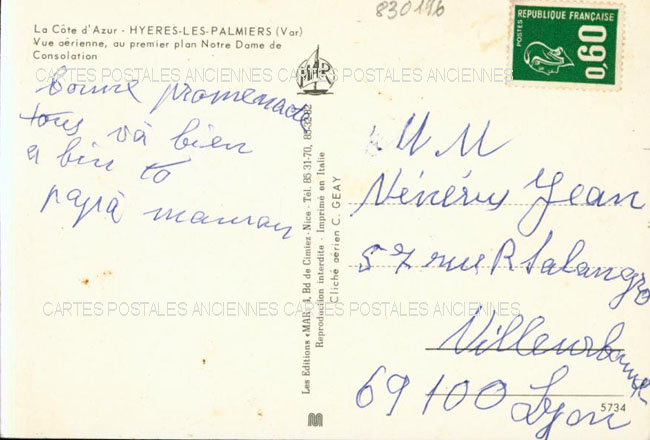 830196
La Côte d'Azur - HYERES-LES-PALMIERS (Var)
Vue aérienne, au premier plan Notre Dame de
Consolation
CARTES POSTALES ANCIENNES CARTES POSTALES ANCIENNES
Bonne promenade
tous và bien
a bin to
papà maman
CARTES POSTALES ANCIENNES CARTES POSTALES ANCIENNES
MAR
Les Editions «MAR», Bd de Cimiez - Nice - Tél. 85-31-70,
Reproduction interdite - Imprimé en Italie
Cliché aérien C. GEAY
POSTES
REPUBLIQUE FRANÇAISE
0,60
M M
Jean
57 rue R Salangro
Villeurbanne
69100 Lyon
5734